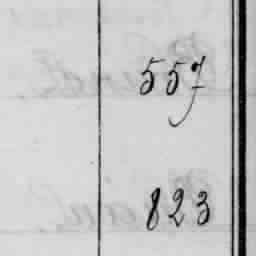 557
823